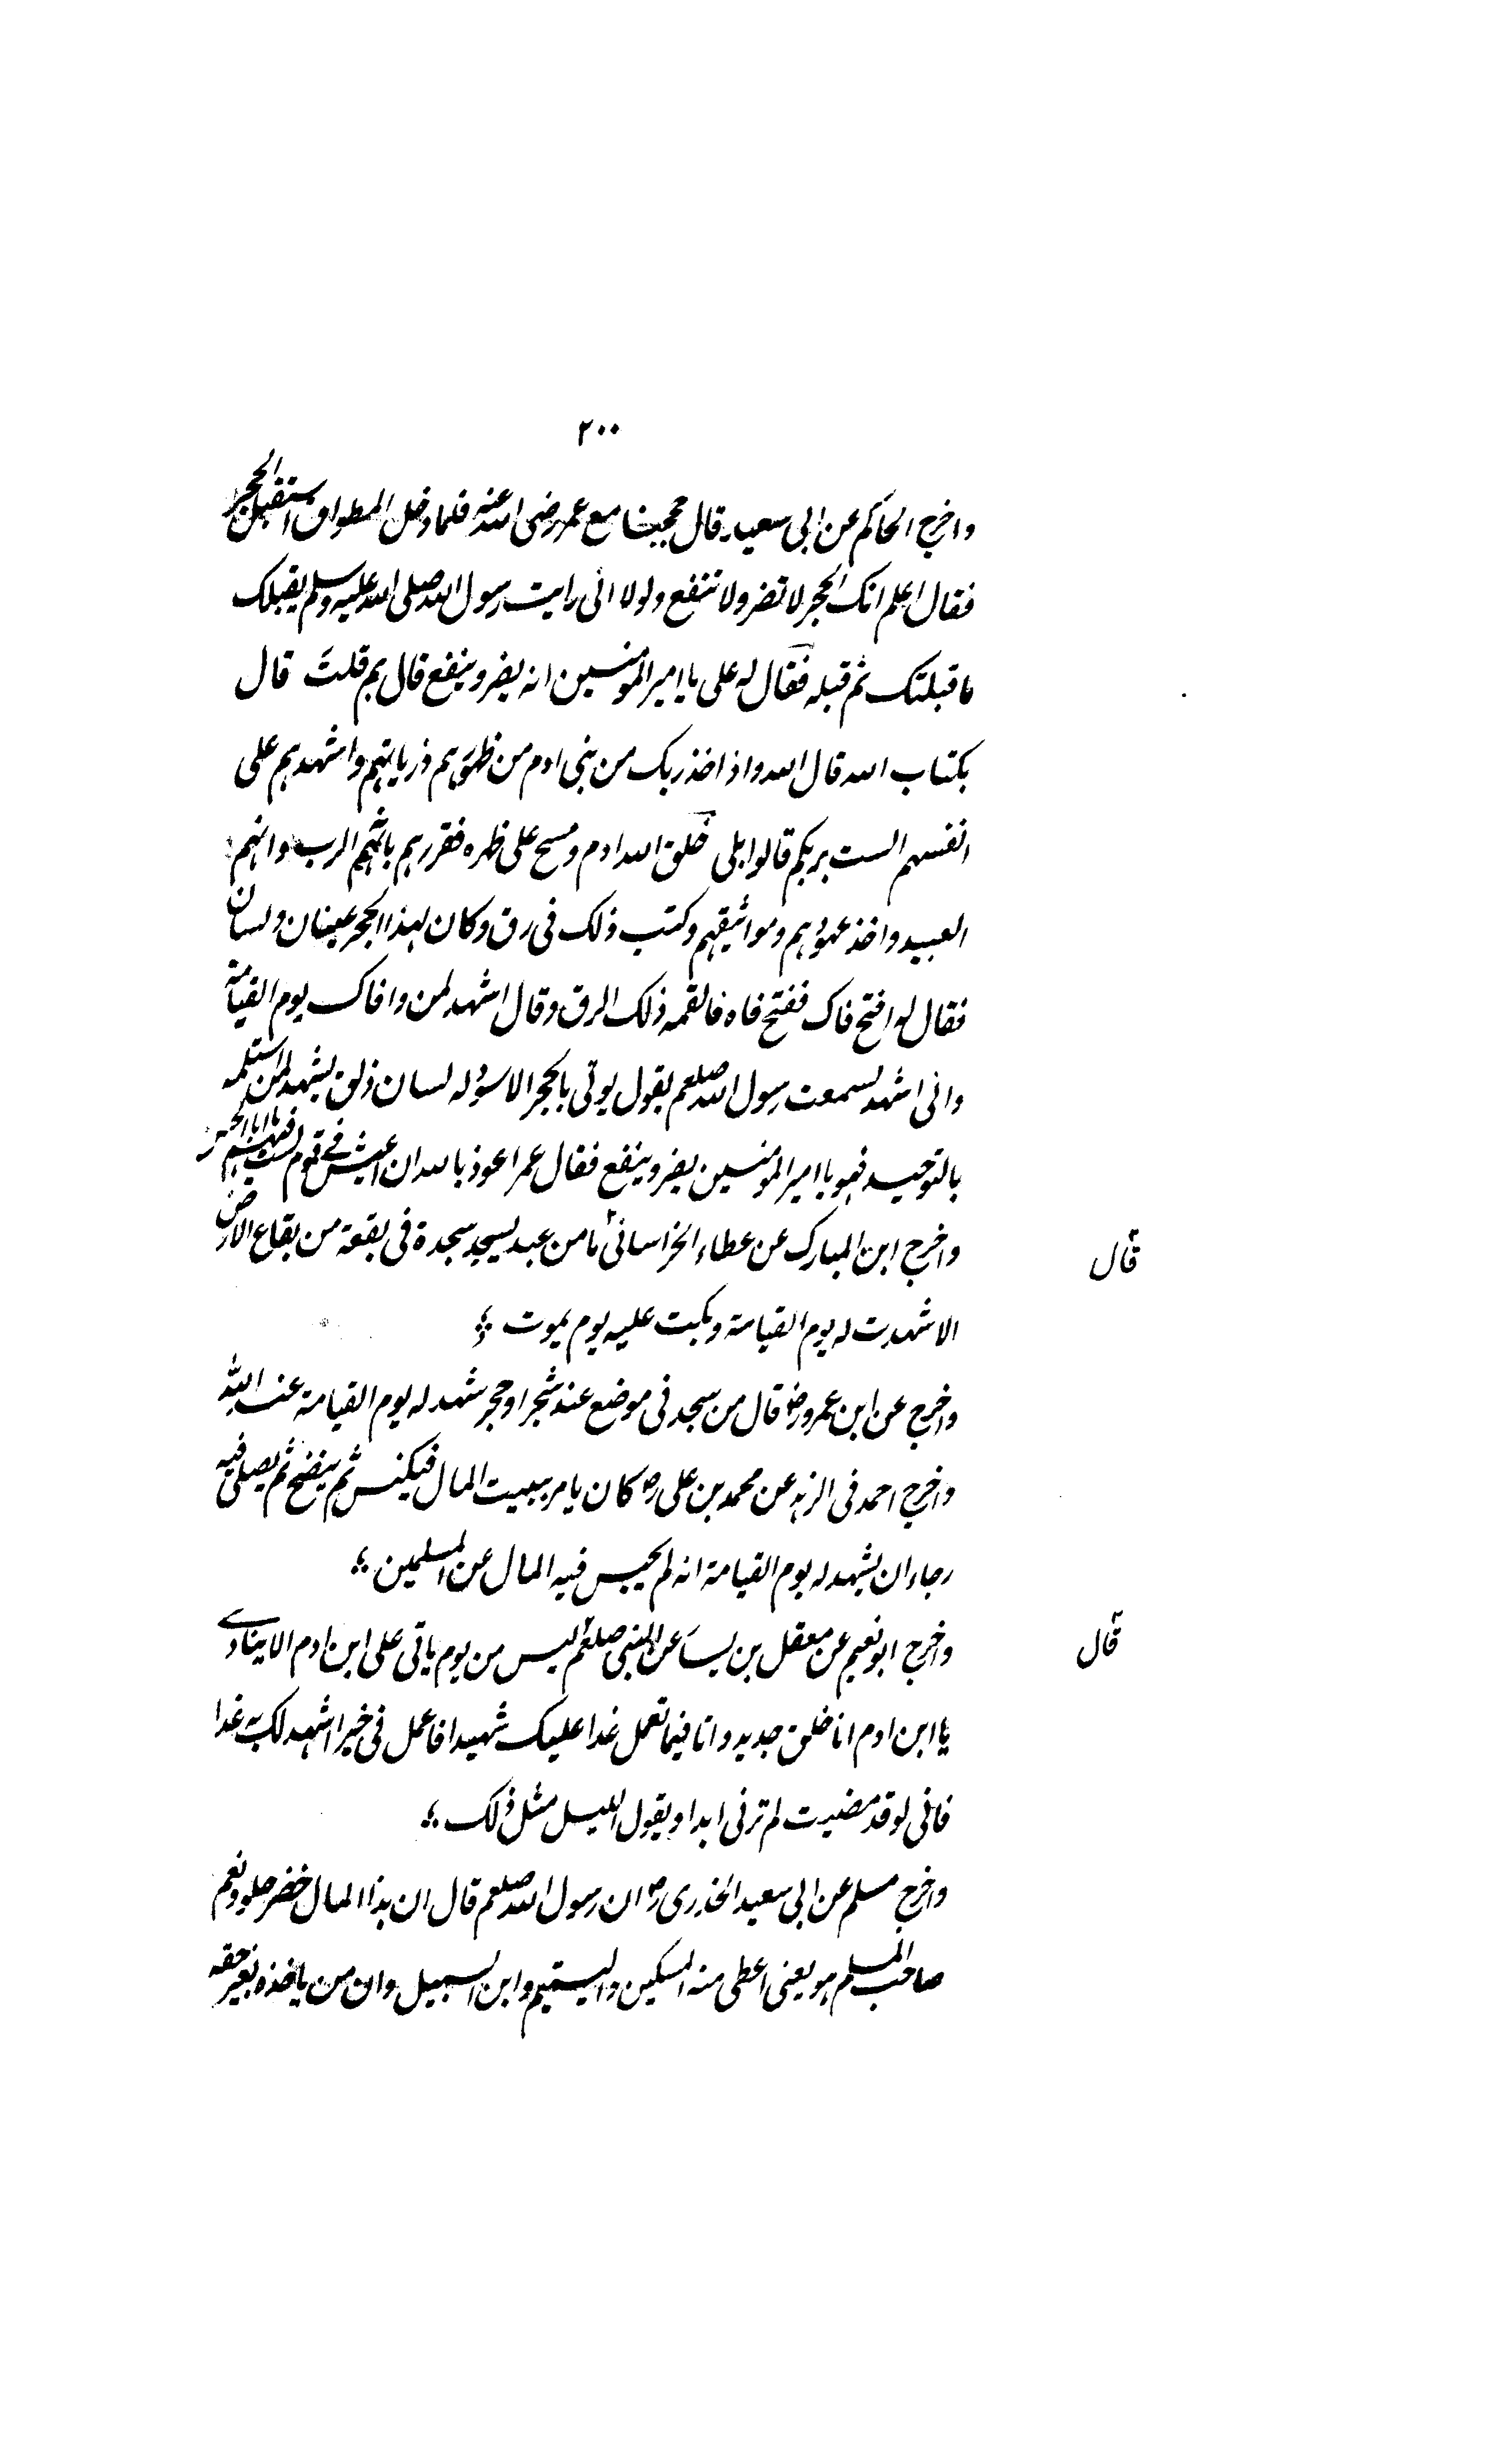 ٢٠٠
واخرج الحاكم عن ابى سعيد قال حججنا مع عمر رضى الله عنه فلما دخل المطواف استقبل الحجر
فقال اعلم انك الحجر لا تضر ولا تنفع ولولا انى رايت رسول الله صلى الله عليه وسلم يقبلك
ما قبلتك ثم قبله فقال له على يا امير المومنين انه يضر وينفع قال بم قلت قال
بكتاب الله قال الله واذ اخذ ربك من بنى ادم من ظهورهم ذرياتهم واشهدهم على
انفسهم الست بربكم قالوا بلى خلق الله ادم ومسح على ظهره فقررهم بانهم الرب وانهم
العبيد واخذ عهودهم ومواثيقهم وكتب ذلك فى رق وكان لهذا الحجر عينان ولسان
فقال له افتح فاك ففتح فاه فالقمه ذلك الرق وقال اشهد لمن وافاك يوم القيامة
وانى اشهد لسمعت رسول الله صلعم يقول يوتى بالحجر الاسود له لسان ذلق يشهد لمن استلمه
بالتوحيد فهو يا امير المومنين يضر وينفع فقال عمر اعوذ بالله ان اعيش فے قوم لست فيهم يا ابا الحسن
واخرج ابن المبارك عن عطاء الخراسانى ما من عبد يسجد سجدة فى بقعة من بقاع الارض
قال
الا شهدت له يوم القيامة وبكت عليه يوم يموت
واخرج عن ابن عمرو رض قال من سجد فى موضع عند شجر او حجر شهد له يوم القيامة عند الله
واخرج احمد فى الزهد عن محمد بن على رض كان يامر ببيت المال فيكنس ثم ينضح ثم يصلى فيه
رجاء ان يشهد له يوم القيامة انه لم يحبس فيه المال عن المسلمين
واخرج ابو نعيم عن معقل بن يسار عن النبى صلعم ليس من يوم ياتى على ابن ادم الا ينادے
قال
يا ابن ادم انا خلق جديد وانا فيما تعمل غدا عليك شهيد افاعمل فى خيرا اشهد لك به غدا
فانى لو قد مضيت لم ترنى ابدا ويقول الليل مثل ذلك
واخرج مسلم عن ابى سعيد الخدرى رض ان رسول الله صلعم قال ان هذا المال خضر حلو ونعم
صاحب المسلم هو يعنى اعطى منه المسكين واليتيم وابن السبيل وان من ياخذه بغير حقه